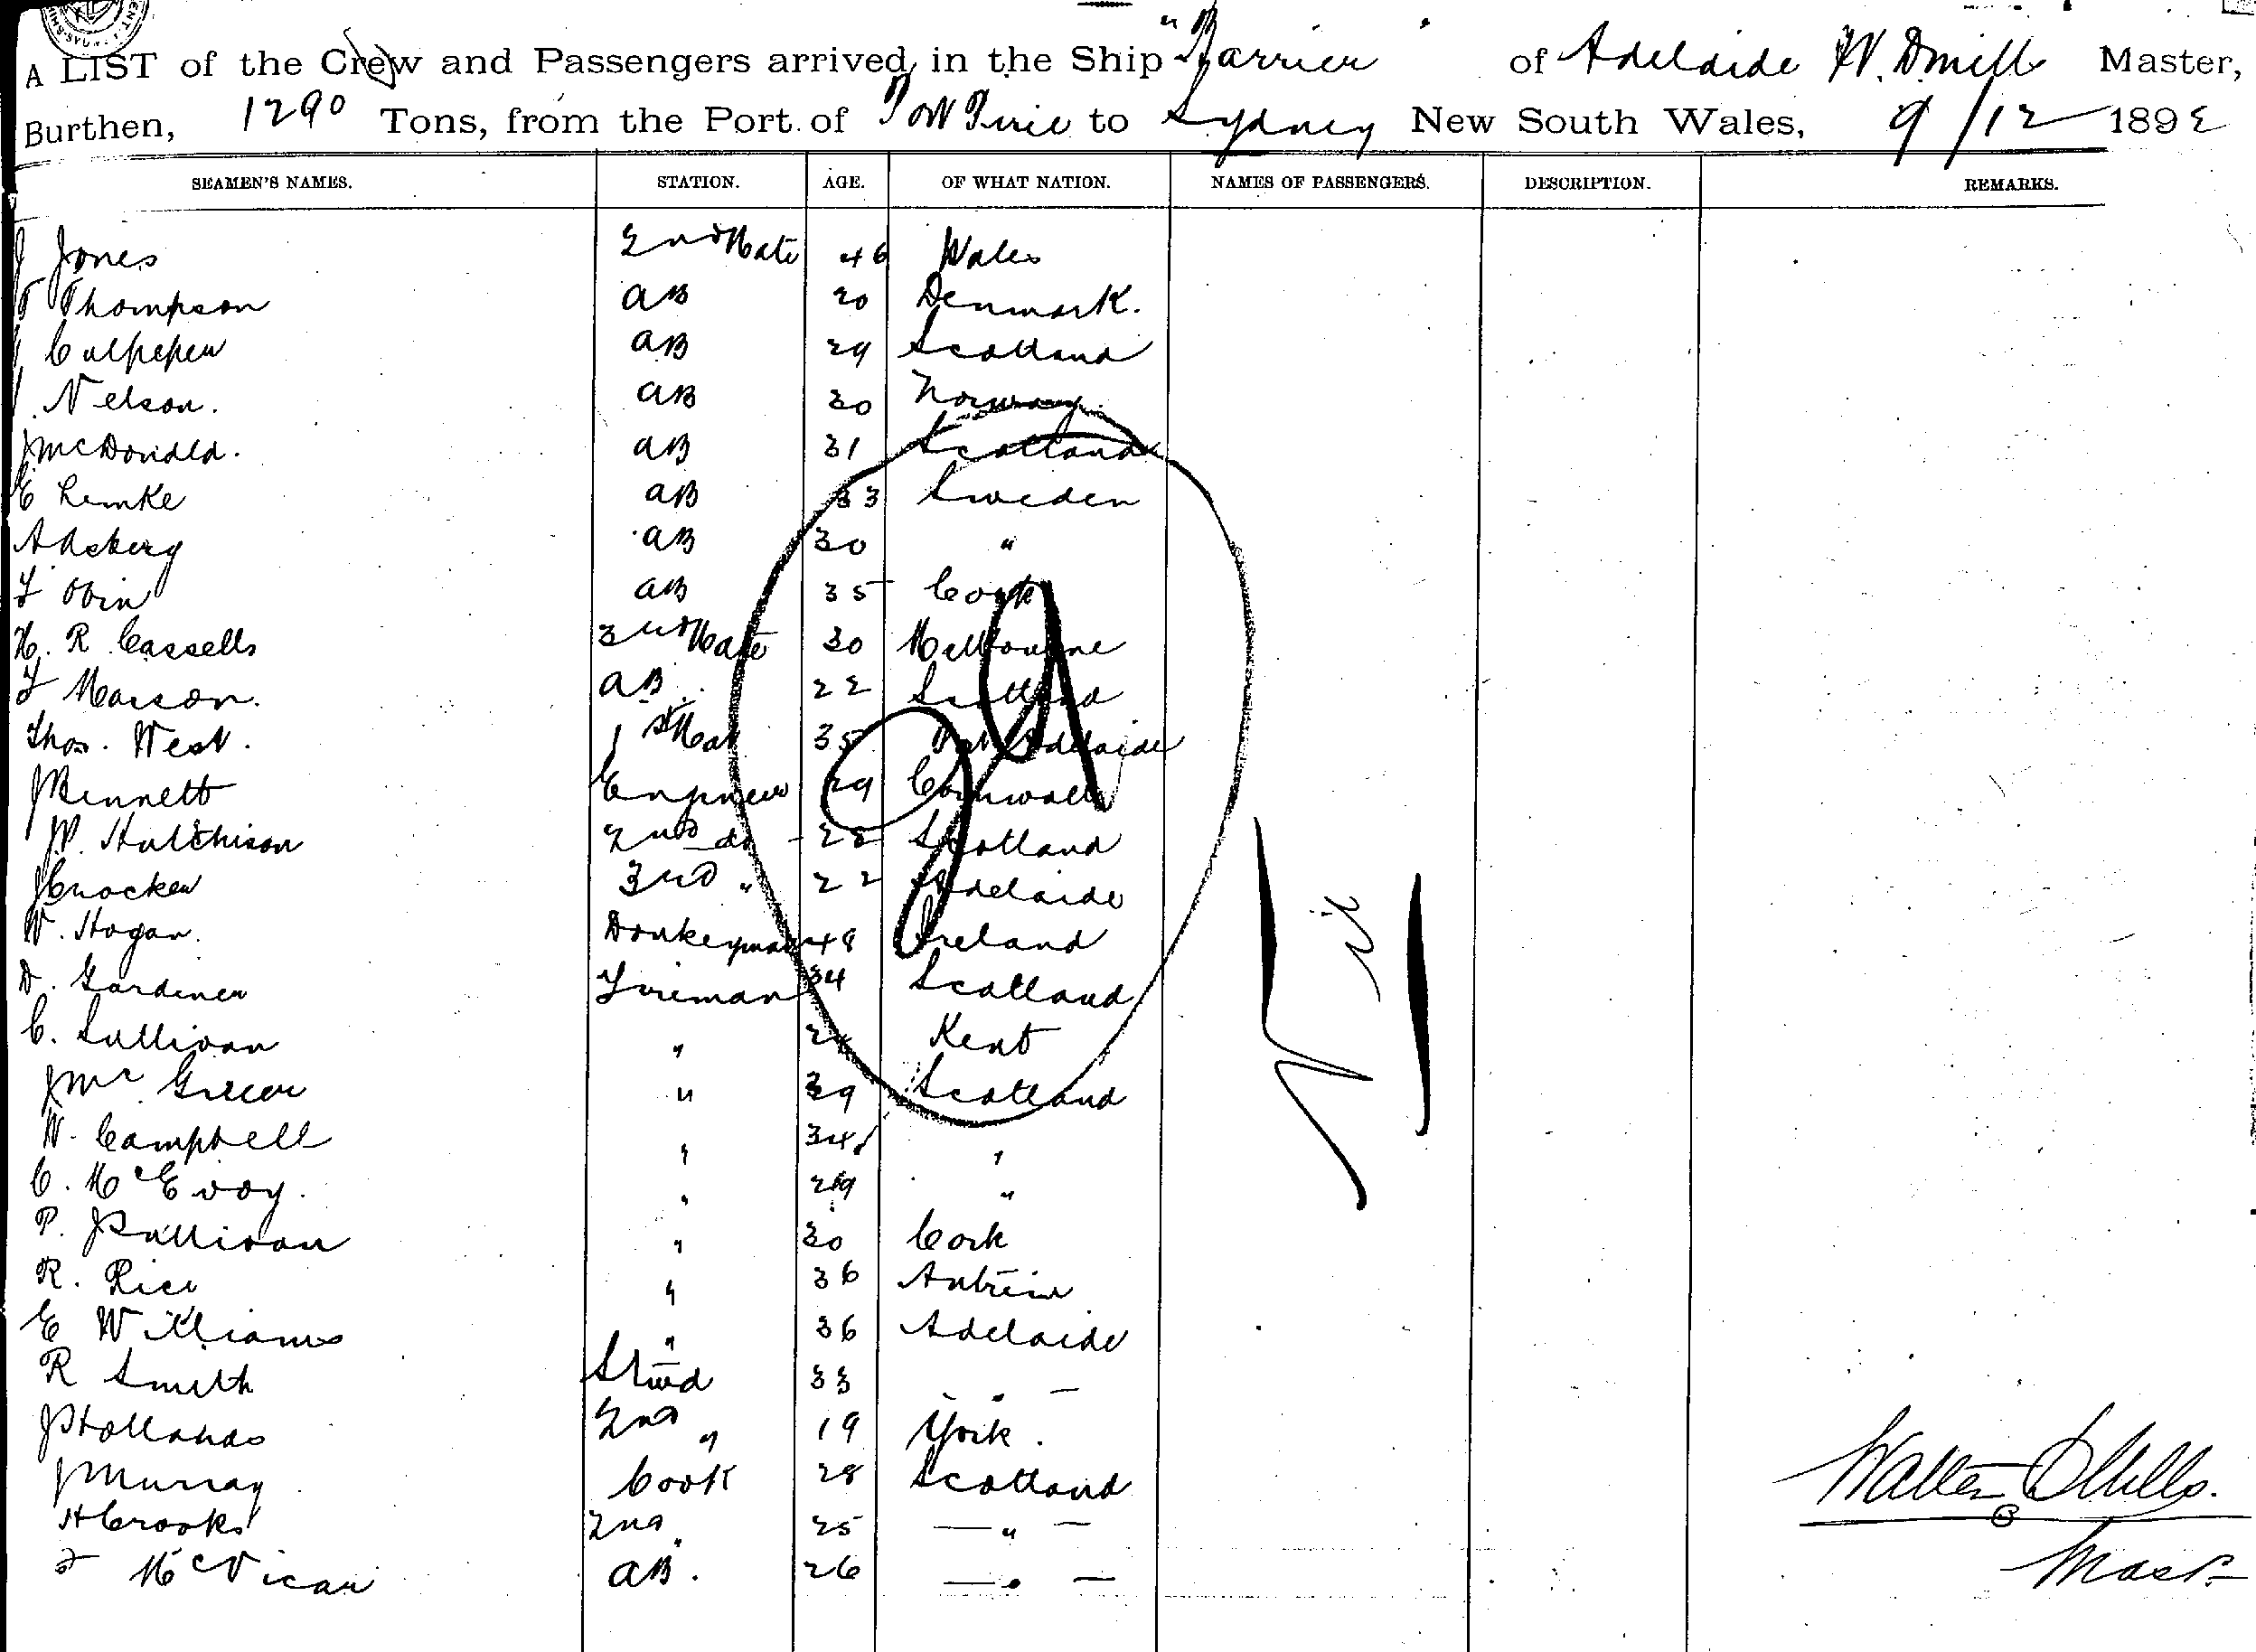 A LIST of the Crew and Passengers arrived in the Ship "Barrier" of Adelaide W. D mills Master,
Burthen, 1290 Tons, from the Port of Port Pirie to Sydney New South Wales, 9/12 1892
SEAMEN'S NAMES. STATION. AGE. OF WHAT NATION. NAMES OF PASSENGERS. DESCRIPTION. REMARKS.
J Jones 2nd Mate 46 Wales
T Thompson AB 20 Denmark.
Culpeper AB 29 Scotland
Nelson. AB 30 Norway
J McDonald. AB 31 Scotland
E Lemke AB 33 Sweden
A AB 30 "
T Obin AB 35 Cork
H. R Cassells 3rd Mate 30 Melbourne
T Maison. AB 22 Scotland
Thos. West. 1st Mat 35 Port Adelaide
J Bennett Engineer 29 Cornwall
W. Hutchison 2nd do 28 Scotland
J Crocker 3rd " 22 Adelaide
W. Hogan. Donkeyman 48 Ireland
D. Gardiner Fireman 34 Scotland
C. Sullivan " Kent
J Mc Grecor " 39 Scotland
W. Campbell " 34 "
C. McEvoy. " 29 "
P. J Sullivan " 30 Cork
R. Rice " 36 Antrim
E Williams " 36 Adelaide
R Smith Stwd 33 "
J Hollands 2nd " 19 York.
J Murray Cook 28 Scotland
H Crooks 2nd " 25 "
McVicar AB. 26 "
Nil
Walter D Mills.
Mast.